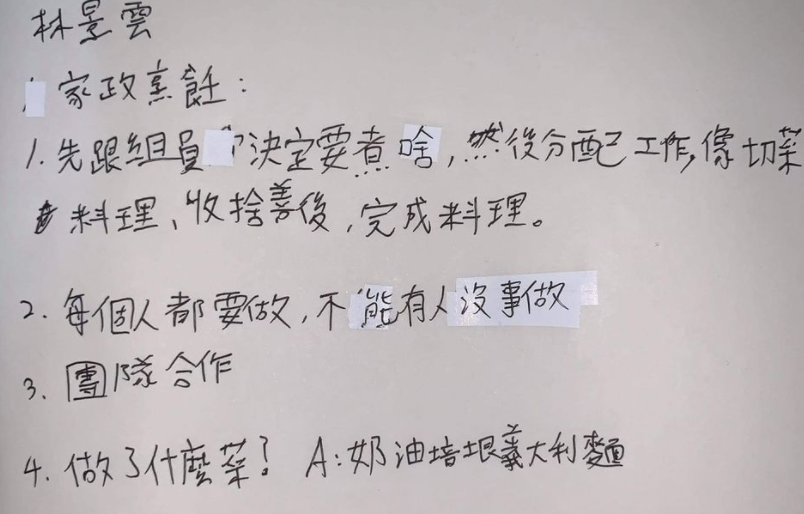 林景雲
家政烹飪:
1.先跟組員決定要煮啥,然後分配工作,像切菜
料理、收捨善後,完成料理。
2.每個人都要做,不能有人沒事做
3.團隊合作
4.做了什麼菜? A:奶油培根義大利麵